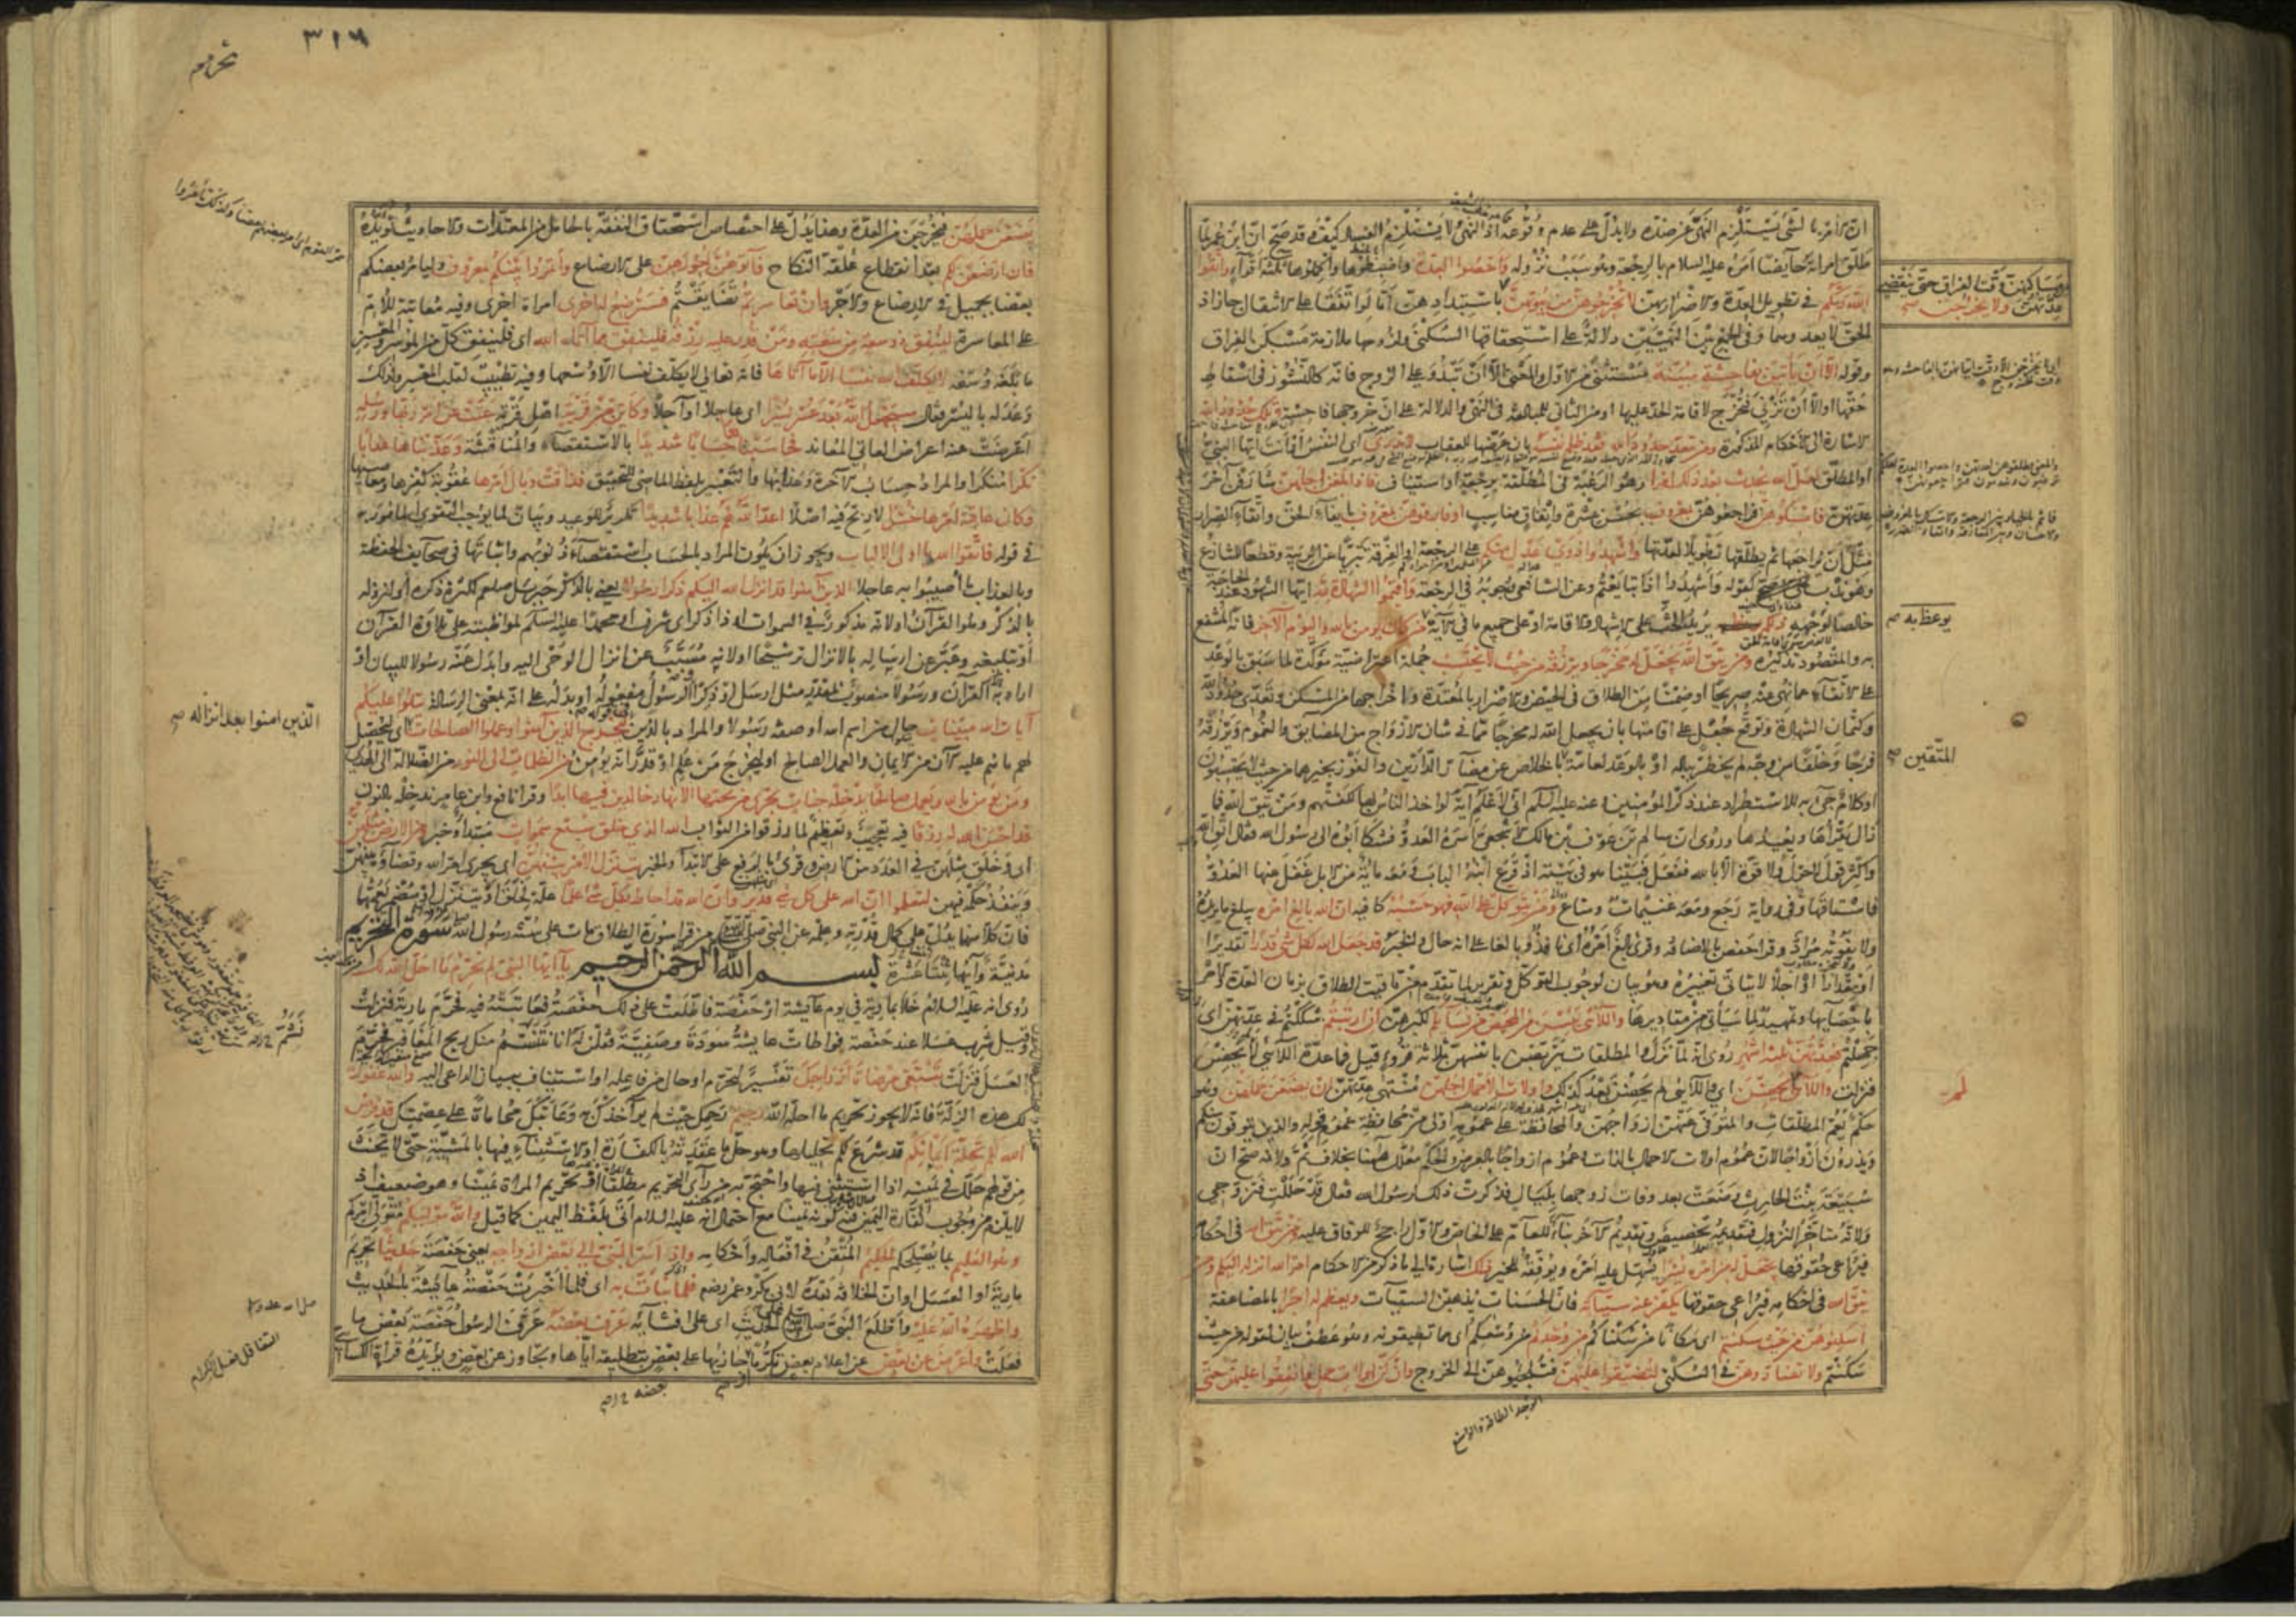 ان الامر بالشئ يستلزم النهى عن ضده ولا يدل على عدم وقوعه اذ النهى لا يستلزم الفساد كيف وقد صح ان ابن عمر لما
طلق امراته حائضا امره عليه السلام بالرجعة وهو سبب نزوله واحصوا العدة واضبطوها واكملوها ثلثة اقراء واتقوا
الله ربكم فى تطويل العدة والاضرار بهن لا تخرجوهن من بيوتهن باستبدادهن اما لو اتفقا على الانتقال جاز اذ
الحق لا يعدوهما وفى الجمع بين النهيين دلالة على استحقاقها السكنى ولزومها ملازمة مسكن الفراق
وقوله الا ان ياتين بفاحشة مبينة مستثنى من الاول والمعنى الا ان تبذو على الزوج فانه كالنشوز فى اسقاط
حقها او الا ان تزنى فتخرج لاقامة الحد عليها او من الثانى للمبالغة فى النهى والدلالة على ان خروجها فاحشة وتلك حدود الله
الاشارة الى الاحكام المذكورة ومن يتعد حدود الله فقد ظلم نفسه بان عرضها للعقاب لا تدرى اى النفس او انت ايها النبى
او المطلق لعل الله يحدث بعد ذلك امرا وهو الرغبة فى المطلقة برجعة او استيناف فاذا بلغن اجلهن شارفن آخر
عدتهن فامسكوهن فراجعوهن بمعروف بحسن عشرة وانفاق مناسب او فارقوهن بمعروف بايفاء الحق واتقاء الضرار
مثل ان يراجعها ثم يطلقها تطويلا لعدتها واشهدوا ذوى عدل منكم على الرجعة او الفرقة تبريا عن الريبة وقطعا للتنازع
وهو ندب كقوله واشهدوا اذا تبايعتم وعن الشافعى وجوبه فى الرجعة واقيموا الشهادة ايها الشهود عند الحاجة لله
خالصا لوجهه ذلكم يريد الحث على الاشهاد والاقامة او على جميع ما فى الآية من كان يؤمن بالله واليوم الآخر فانه المنتفع
به والمقصود تذكيره ومن يتق الله يجعل له مخرجا ويرزقه من حيث لا يحتسب جملة اعتراضية مؤكدة لما سبق بالوعد
على الاتقاء عما نهى عنه صريحا او ضمنا من الطلاق فى الحيض والاضرار بالمعتدة واخراجها من المسكن وتعدى حدود الله
وكتمان الشهادة وتوقع جعل على اقامتها بان يجعل الله له مخرجا مما فى شان الازواج من المضايق والغموم ويرزقه
فرجا وخلفا من وجه لم يخطر بباله او بالوعد لعامة المتقين بالخلاص عن مضار الدارين والفوز بخيرهما من حيث لا يحتسبون
او كلام جئ به للاستطراد عند ذكر المؤمنين وعنه عليه السلام انى لاعلم آية لو اخذ الناس بها لكفتهم ومن يتق الله فما
زال يقرأها ويعيدها وروى ان سالم بن عوف بن مالك الاشجعى اسره العدو فشكا ابوه الى رسول الله فقال اتق الله
واكثر قول لا حول ولا قوة الا بالله ففعل فبينا هو فى بيته اذ قرع ابنه الباب ومعه مائة من الابل غفل عنها العدو
فاستاقها وفى رواية رجع ومعه غنيمات ومتاع ومن يتوكل على الله فهو حسبه كافيه ان الله بالغ امره يبلغ ما يريده
ولا يفوته مراد وقرأ حفص بالاضافة وقرئ بالغ امره اى نافذ وبالغا على انه حال والخبر قد جعل الله لكل شئ قدرا تقديرا
او مقدارا او اجلا لا يتاتى تغييره وهو بيان لوجوب التوكل وتقرير لما تقدم من تاقيت الطلاق بزمان العدة والامر
باحصائها وتمهيد لما سيأتى من مقاديرها واللائى يئسن من المحيض من نسائكم لكبرهن ان ارتبتم شككتم فى عدتهن اى
جهلتم فعدتهن ثلثة اشهر روى انه لما نزل والمطلقات يتربصن بانفسهن ثلاثة قروء قيل فما عدة اللائى لم يحضن
فنزلت واللائى لم يحضن اى واللائى لم يحضن بعد كذلك واولات الاحمال اجلهن منتهى عدتهن ان يضعن حملهن وهو
حكم يعم المطلقات والمتوفى عنهن ازواجهن والمحافظة على عمومه اولى من محافظة عموم قوله والذين يتوفون منكم
ويذرون ازواجا لان عموم اولات الاحمال بالذات وعموم ازواجا بالعرض والحكم معلل ههنا بخلاف ثم ولانه صح ان
سبيعة بنت الحارث وضعت بعد وفات زوجها بليال فذكرت ذلك لرسول الله فقال قد حللت فتزوجى
ولانه متاخر النزول فتقديمه تخصيص وتقديم الآخر بناء للعام على الخاص والاول راجح للوفاق عليه ومن يتق الله فى احكامه
فيراعى حقوقها يجعل له من امره يسرا يسهل عليه امره ويوفقه للخير ذلك اشارة الى ما ذكر من الاحكام امر الله انزله اليكم ومن
يتق الله فى احكامه فيراعى حقوقها يكفر عنه سيئاته فان الحسنات يذهبن السيئات ويعظم له اجرا بالمضاعفة
اسكنوهن من حيث سكنتم اى مكانا من سكناكم من وجدكم من وسعكم اى مما تطيقونه وهو عطف بيان لقوله من حيث
سكنتم ولا تضاروهن فى السكنى لتضيقوا عليهن فتلجئوهن الى الخروج وان كن اولات حمل فانفقوا عليهن حتى
يوعظ به صح
المتقين صح
الوجد الطاقة والوسع
٣١٦
يضعن حملهن فيخرجن من العدة وهذا يدل على اختصاص استحقاق النفقة بالحامل من المعتدات والاحاديث تؤيده
فان ارضعن لكم بعد انقطاع علقة النكاح فآتوهن اجورهن على الارضاع وأتمروا بينكم بمعروف وليامر بعضكم
بعضا بجميل فى الارضاع والاجر وان تعاسرتم تضايقتم فسترضع له اخرى امراة اخرى وفيه معاتبة للام
على المعاسرة لينفق ذو سعة من سعته ومن قدر عليه رزقه فلينفق مما آتاه الله اى فلينفق كل من الموسر والمعسر
ما بلغه وسعه لا يكلف الله نفسا الا ما آتاها فانه تعالى لا يكلف نفسا الا وسعها وفيه تطييب لقلب المعسر ولذلك
وعد له باليسر فقال سيجعل الله بعد عسر يسرا اى عاجلا او آجلا وكاين من قرية اهل قرية عتت عن امر ربها ورسله
اعرضت عنه اعراض العاتى المعاند فحاسبناها حسابا شديدا بالاستقصاء والمناقشة وعذبناها عذابا
نكرا منكرا والمراد حساب الآخرة وعذابها والتعبير بلفظ الماضى للتحقيق فذاقت وبال امرها عقوبة كفرها ومعاصيها
وكان عاقبة امرها خسرا لا ربح فيه اصلا اعد الله لهم عذابا شديدا تكرير للوعيد وبيان لما يوجب التقوى المامور به
فى قوله فاتقوا الله يا اولى الالباب ويجوز ان يكون المراد بالحساب استقصاء ذنوبهم واثباتها فى صحايف الحفظة
وبالعذاب ما اصيبوا به عاجلا الذين آمنوا قد انزل الله اليكم ذكرا رسولا يعنى بالذكر جبرئيل صلعم لكثرة ذكره او لنزوله
بالذكر وهو القرآن او لانه مذكور فى السموات او ذا ذكر اى شرف او محمدا عليه السلم لمواظبته على تلاوة القرآن
او تبليغه وعبر عن ارساله بالانزال ترشيحا او لانه مسبب عن انزال الوحى اليه وابدل عنه رسولا للبيان او
اراد به القرآن ورسولا منصوب بمقدر مثل ارسل او ذكرا والرسول مفعوله او بدله على انه بمعنى الرسالة يتلوا عليكم
آيات الله مبينات حال من اسم الله او صفة رسولا والمراد بالذين ليخرج الذين آمنوا وعملوا الصالحات اى ليحصل
لهم ما هم عليه الآن من الايمان والعمل الصالح او ليخرج من علم او قدر انه يؤمن من الظلمات الى النور من الضلالة الى الهدى
ومن يؤمن بالله ويعمل صالحا يدخله جنات تجرى من تحتها الانهار خالدين فيها ابدا وقرأ نافع وابن عامر ندخله بالنون
قد احسن الله له رزقا فيه تعجيب وتعظيم لما رزقوا من الثواب الله الذى خلق سبع سموات مبتدا وخبر ومن الارض مثلهن
اى وخلق مثلهن فى العدد من الارض وقرئ بالرفع على الابتداء والخبر يتنزل الامر بينهن اى يجرى امر الله وقضاؤه بينهن
وينفذ حكمه فيهن لتعلموا ان الله على كل شئ قدير وان الله قد احاط بكل شئ علما علة لخلق او يتنزل او مضمر يعمهما
فان كلا منهما يدل على كمال قدرته وعلمه عن النبى من قرأ سورة الطلاق مات على سنة رسول الله سورة التحريم
مدنية وآيها اثنتا عشرة بسم الله الرحمن الرحيم يا ايها النبى لم تحرم ما احل الله لك
روى انه عليه السلام خلا بمارية فى يوم عايشة او حفصة فاطلعت على ذلك حفصة فعاتبته فيه فحرم مارية فنزلت
وقيل شرب عسلا عند حفصة فواطأت عايشة سودة وصفية فقلن له انا نشم منك ريح المغافير فحرم
العسل فنزلت تبتغى مرضات ازواجك تفسير لتحرم او حال من فاعله او استيناف ببيان الداعى اليه والله غفور
لك هذه الزلة فانه لا يجوز تحريم ما احله الله رحيم رحمك حيث لم يؤاخذك به وعاتبك محاماة على عصمتك قد فرض
الله لكم تحلة ايمانكم قد شرع لكم تحليلها وهو حل ما عقدته بالكفارة او الاستثناء فيها بالمشية حتى لا يحنث
من قولهم حلل فى يمينه اذا استثنى فيها واحتج به من رأى التحريم مطلقا او تحريم المراة يمينا وهو ضعيف اذ
لا يلزم من وجوب كفارة اليمين فيه كونه يمينا مع احتمال انه عليه السلام اتى بلفظ اليمين كما قيل والله موليكم متولى امركم
وهو العليم بما يصلحكم الحكيم المتقن فى افعاله واحكامه واذ اسر النبى الى بعض ازواجه يعنى حفصة حديثا تحريم
مارية او العسل او ان الخلافة بعده لابى بكر وعمر رضهم فلما نبأت به اى فلما اخبرت حفصة عايشة بالحديث
واظهره الله عليه واطلع النبى على الحديث اى على افشائه عرف بعضه عرف الرسول حفصة بعض ما
فعلت واعرض عن بعض عن اعلام بعض تكرما او جازيها على بعض بتطليقه اياها وتجاوز عن بعض ويؤيده قراءة الكسائى
الذين امنوا بعد انزاله صح